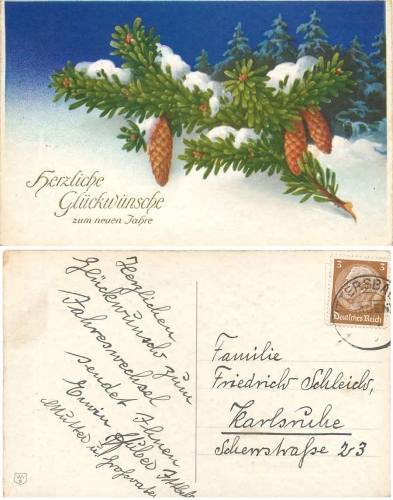 Herzliche
Glückwünsche
zum neuen Jahre
Herzlichen
Glückwunsch zum
Jahreswechsel
sendet Ihnen
Erwin Huber
Mutter u. Großvater
3 3
Deutsches Reich
Familie
Friedrich Schleich,
Karlsruhe
Scherrstraße 23